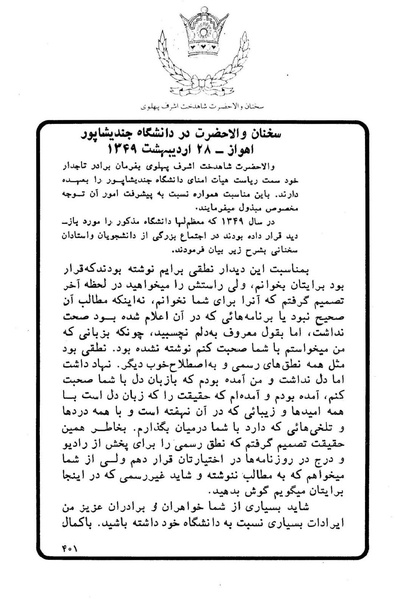 سخنان والاحضرت شاهدخت اشرف پهلوی
سخنان والاحضرت در دانشگاه جندیشاپور
اهواز ــ ۲۸ اردیبهشت ۱۳۴۹
والاحضرت شاهدخت اشرف پهلوی بفرمان برادر تاجدار
خود سمت ریاست هیأت امنای دانشگاه جندیشاپور را بعهده
دارند. باین مناسبت همواره نسبت به پیشرفت امور آن توجه
مخصوص مبذول میفرمایند.
در سال ۱۳۴۹ که معظم‌لها دانشگاه مذکور را مورد باز-
دید قرار داده بودند در اجتماع بزرگی از دانشجویان واستادان
سخنانی بشرح زیر بیان فرمودند.
بمناسبت این دیدار نطقی برایم نوشته بودندکه‌قرار
بود برایتان بخوانم، ولی راستش را میخواهید در لحظه آخر
تصمیم گرفتم که آنرا برای شما نخوانم، نه‌اینکه مطالب آن
صحیح نبود یا برنامه‌هائی که در آن اعلام شده بود صحت
نداشت، اما بقول معروف به‌دلم نچسبید، چونکه بزبانی که
من میخواستم با شما صحبت کنم نوشته نشده بود. نطقی بود
مثل همه نطق‌های رسمی و به‌اصطلاح‌خوب دیگر. نهاد داشت
اما دل نداشت و من آمده بودم که بازبان دل با شما صحبت
کنم، آمده بودم و آمده‌ام که حقیقت را که زبان دل است با
همه امیدها و زیبائی که در آن نهفته است و با همه دردها
و تلخی‌هائی که دارد با شما درمیان بگذارم. بخاطر همین
حقیقت تصمیم گرفتم که نطق رسمی را برای پخش از رادیو
و درج در روزنامه‌ها در اختیارتان قرار دهم ولی از شما
میخواهم که به مطالب ننوشته و شاید غیررسمی که در اینجا
برایتان میگویم گوش بدهید.
شاید بسیاری از شما خواهران و برادران عزیز من
ایرادات بسیاری نسبت به دانشگاه خود داشته باشید. باکمال
۴۰۱